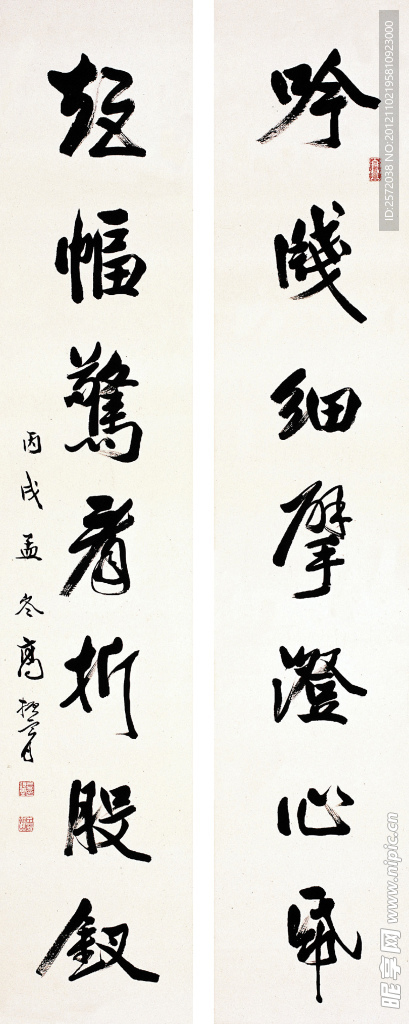 吟牋細擘澄心帋
短幅驚看折股釵
丙戌孟冬高振霄
ID:2572038 NO:20121102195810923000
昵享网 www.nipic.cn